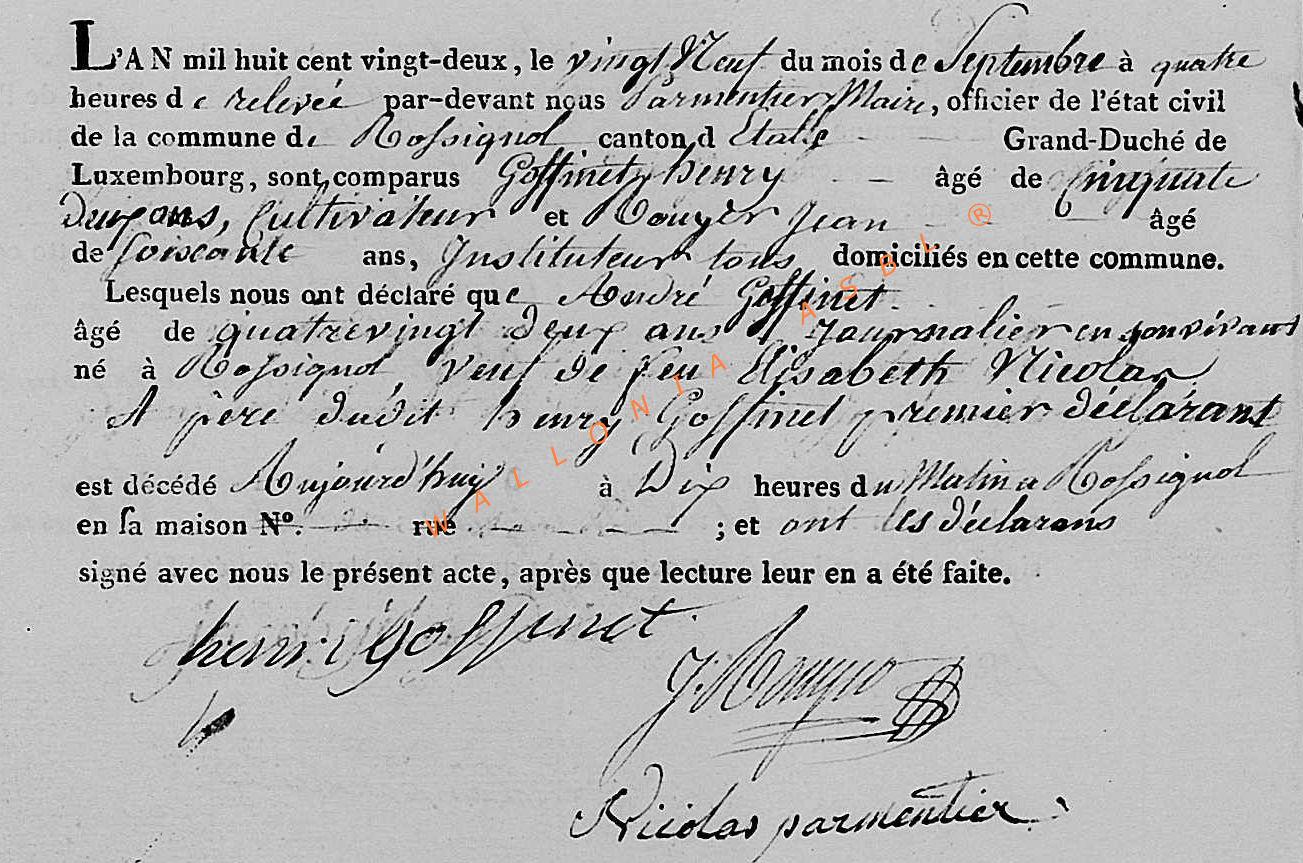 L'AN mil huit cent vingt-deux, le vingt Neuf du mois de Septembre à quatre
heures de relevée par-devant nous Parmentier Maire, officier de l'état civil
de la commune de Rossignol canton d Etalle Grand-Duché de
Luxembourg, sont comparus Goffinet henry âgé de Cinquate
Deux ans, Cultivateur et Rouyer Jean âgé
de Soixante ans, Instituteur tous domiciliés en cette commune.
Lesquels nous ont déclaré que André Goffinet
âgé de quatrevingt deux ans Journalier en sonvivant
né à Rossignol veuf de feu Elisabeth Nicolas
père dudit henry Goffinet premier déclarant
est décédé Aujourd'huy à Dix heures du Matin a Rossignol
en sa maison N°. rue ; et ont les déclarans
signé avec nous le présent acte, après que lecture leur en a été faite.
henri goffinet
J. Rouyer
Nicolas parmentier
WALLONIA ASBL ®